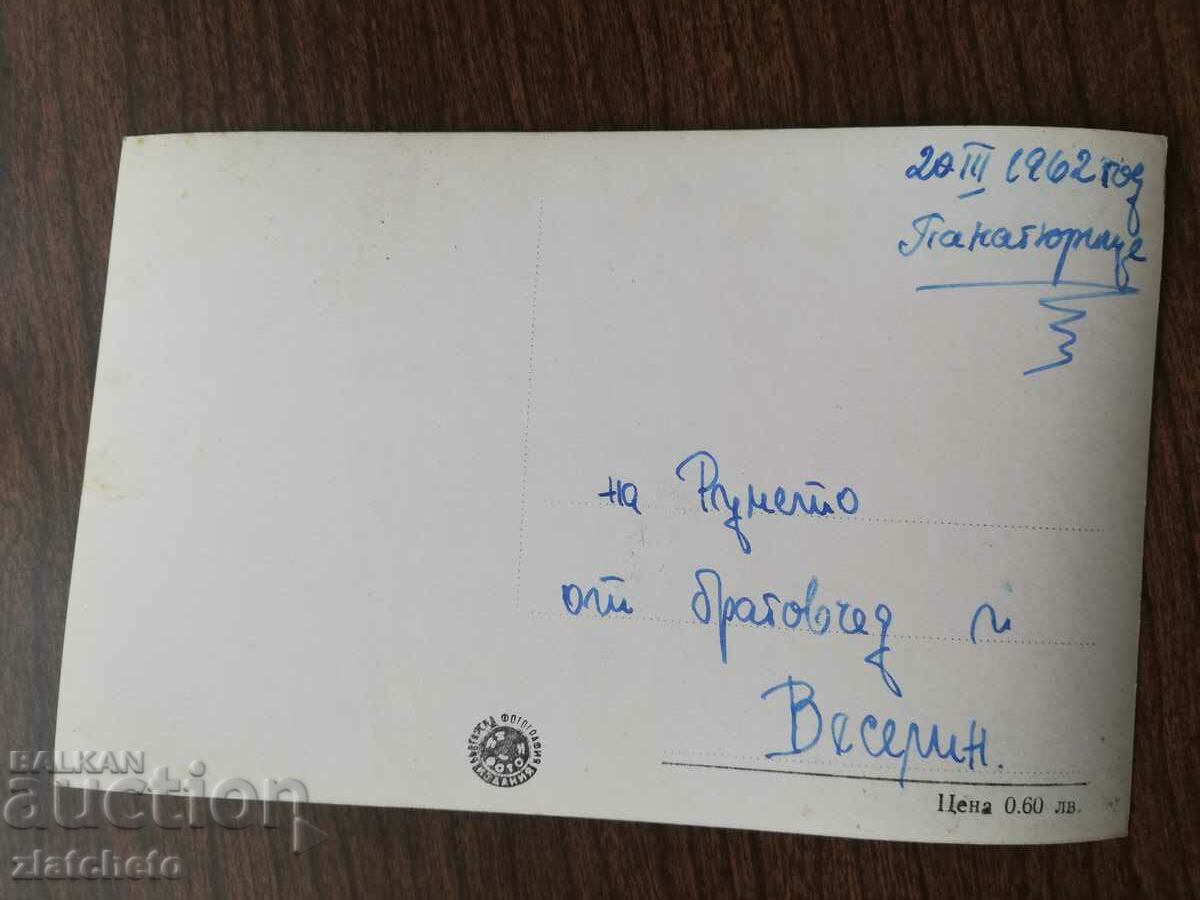 20 III 1962 год
Панагюрище
на Румето
от братовчед ѝ
Веселин.
ФОТОГРАФИЯ
ФОТО
ИЗДАНИЯ
Цена 0.60 лв.
BALKAN
auction
zlatcheto